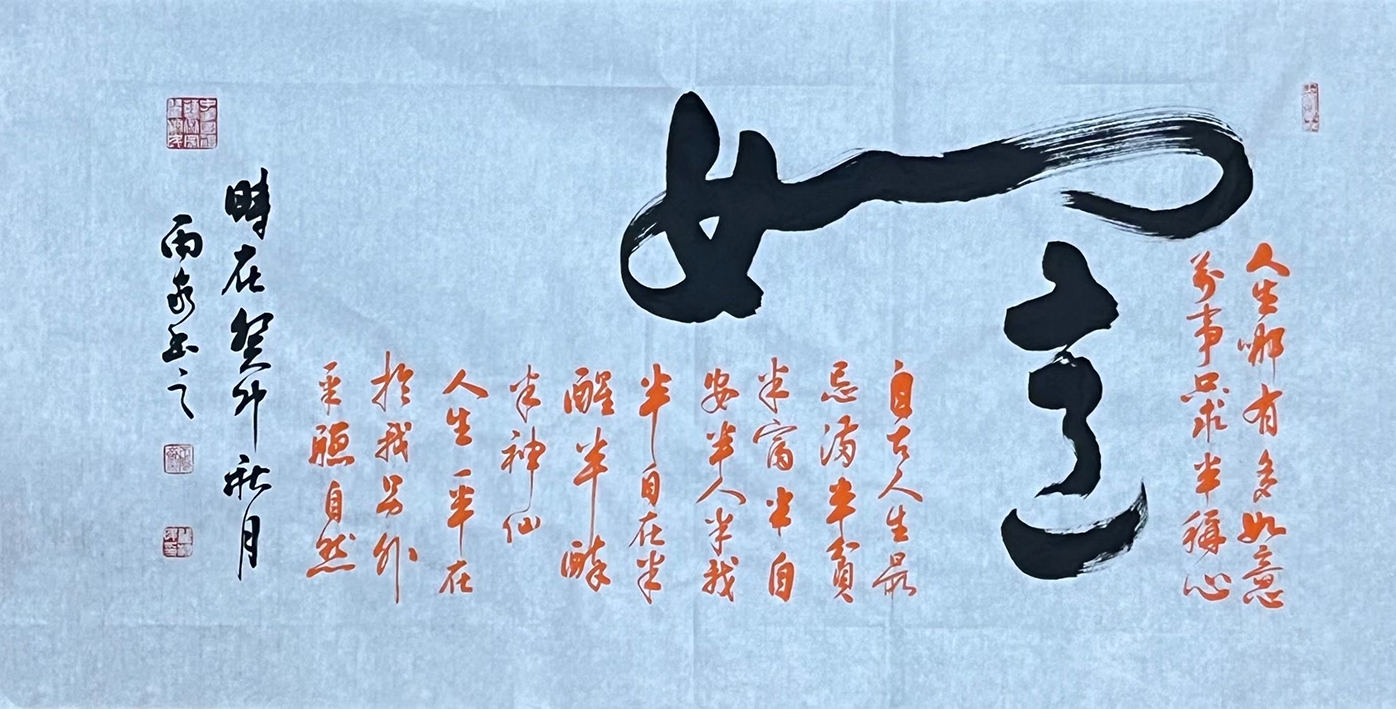 人生哪有多如意
萬事只求半稱心
如意
自古人生最
忌滿半貧
半富半自
安半人半我
半自在半
醒半醉
半神仙
人生一半在
於我另外
半聽自然
時在癸卯秋月
雨泉書之